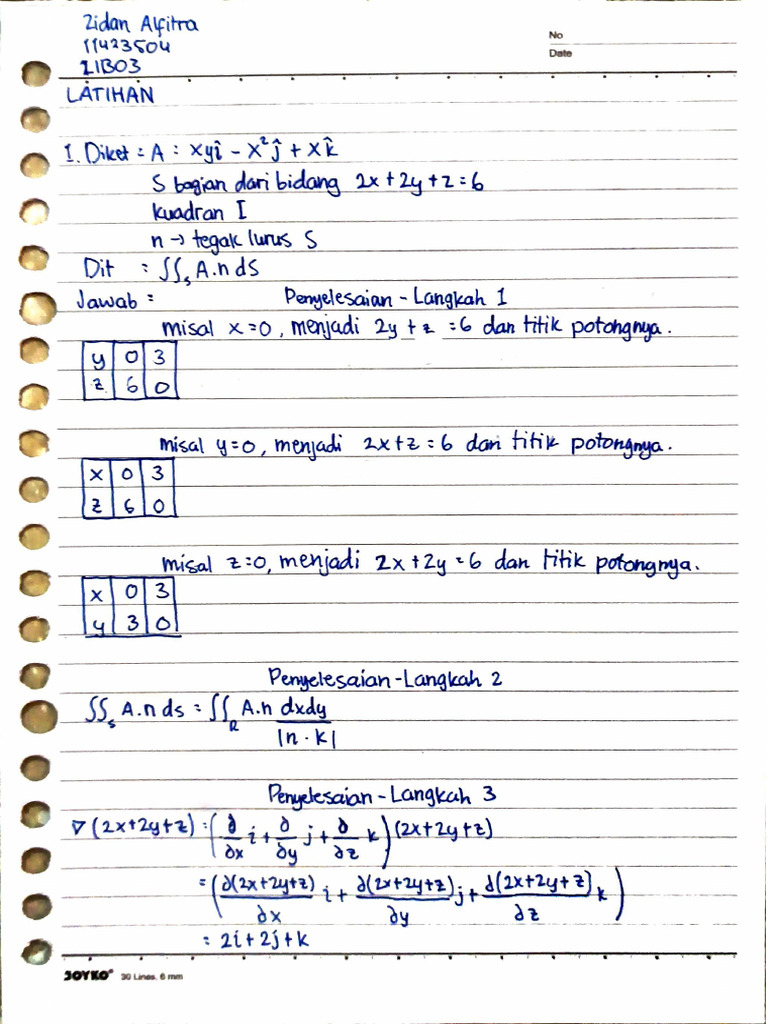 Zidan Alfitra
11423504
2IB03
No
Date
LATIHAN
1. Diket = A : xyî - x²ĵ + xk̂
S bagian dari bidang 2x + 2y + z = 6
kuadran I
n → tegak lurus S
Dit : ∬s A.n dS
Jawab : Penyelesaian - Langkah 1
misal x = 0, menjadi 2y + z = 6 dan titik potongnya.
y 0 3
z 6 0
misal y = 0, menjadi 2x + z = 6 dan titik potongnya.
x 0 3
z 6 0
misal z = 0, menjadi 2x + 2y = 6 dan titik potongnya.
x 0 3
y 3 0
Penyelesaian - Langkah 2
∬s A.n ds = ∬R A.n dxdy
|n . k|
Penyelesaian - Langkah 3
∇ (2x + 2y + z) = (∂/∂x i + ∂/∂y j + ∂/∂z k) (2x + 2y + z)
= (∂(2x+2y+z)/∂x i + ∂(2x+2y+z)/∂y j + ∂(2x+2y+z)/∂z k)
= 2i + 2j + k
JOYKO® 30 Lines, 6 mm